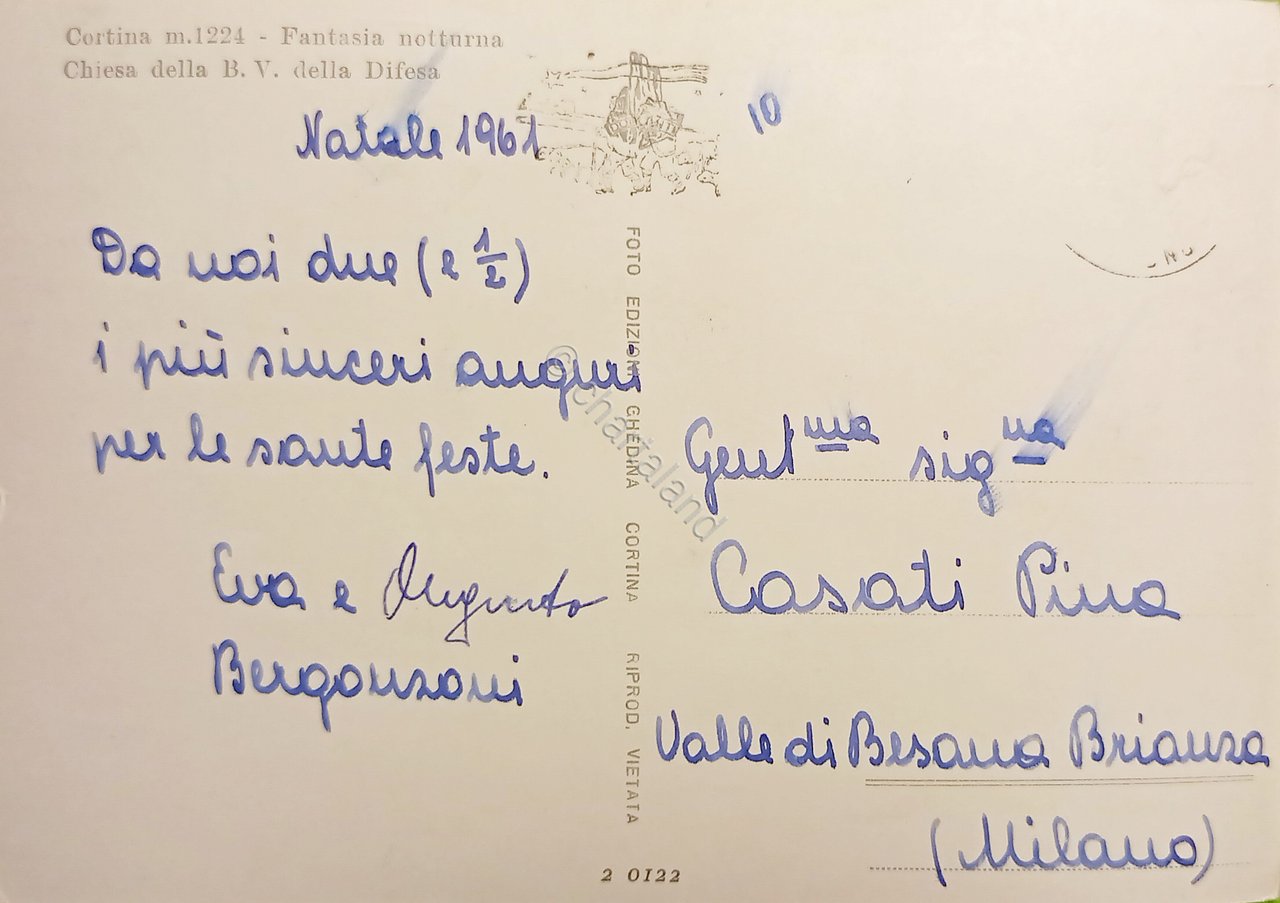 Cortina m.1224 - Fantasia notturna
Chiesa della B. V. della Difesa
Natale 1961
10
Da noi due (e 1/2)
i più sinceri auguri
per le sante feste.
Eva e Augusto
Bergonzoni
FOTO EDIZIONI GHEDINA CORTINA RIPROD. VIETATA
© chartaland
Gent ma sig na
Casati Pina
Valle di Besana Brianza
(Milano)
2 0122